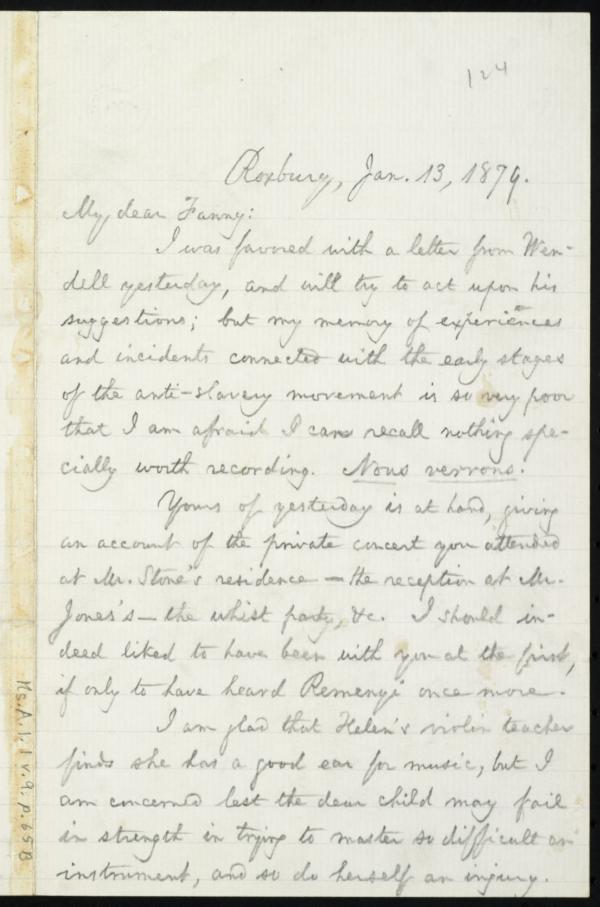 124
Roxbury, Jan. 13, 1879.
My dear Fanny:
I was favored with a letter from Wen-
dell yesterday, and will try to act upon his
suggestions; but my memory of experiences
and incidents connected with the early stages
of the anti-slavery movement is so very poor
that I am afraid I can recall nothing spe-
cially worth recording. Nous verrons.
Yours of yesterday is at hand, giving
an account of the private concert you attended
at Mr. Stone's residence — the reception at Mr.
Jones's — the whist party, &c. I should in-
deed liked to have been with you at the first,
if only to have heard Remenyi once more.
I am glad that Helen's violin teacher
finds she has a good ear for music, but I
am concerned lest the dear child may fail
in strength in trying to master so difficult an
instrument, and so do herself an injury.
Ms. A. 1. 1 v. 9. p. 65B